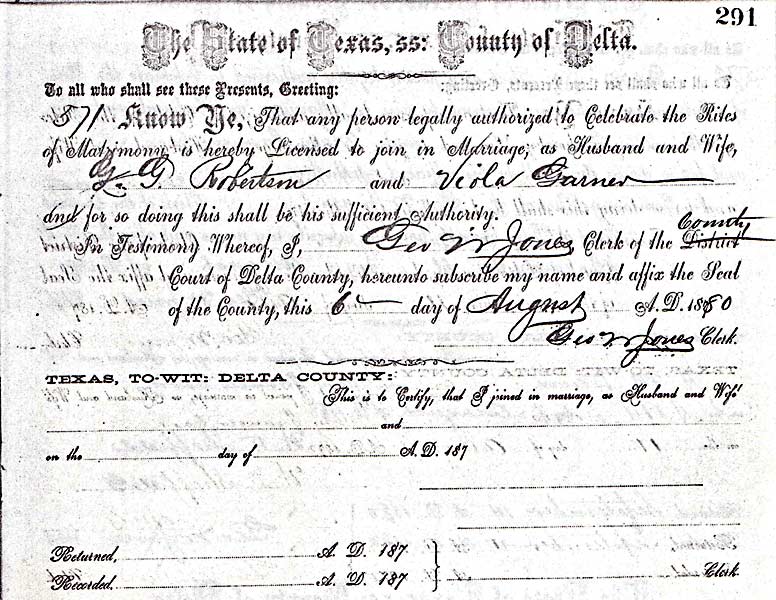 291
The State of Texas, ss: County of Delta.
To all who shall see these Presents, Greeting:
571 Know Ye, That any person legally authorized to Celebrate the Rites
of Matrimony is hereby Licensed to join in Marriage, as Husband and Wife,
G. G. Robertson and Viola Garner
and for so doing this shall be his sufficient Authority.
County
In Testimony Whereof, I, Geo W Jones Clerk of the District
Court of Delta County, hereunto subscribe my name and affix the Seal
of the County, this 6 day of August A. D. 1880
Geo W Jones Clerk.
TEXAS, TO-WIT: DELTA COUNTY:
This is to Certify, that I joined in marriage, as Husband and Wife
and
on the day of A. D. 187
Returned, A. D. 187
Recorded, A. D. 187 Clerk.